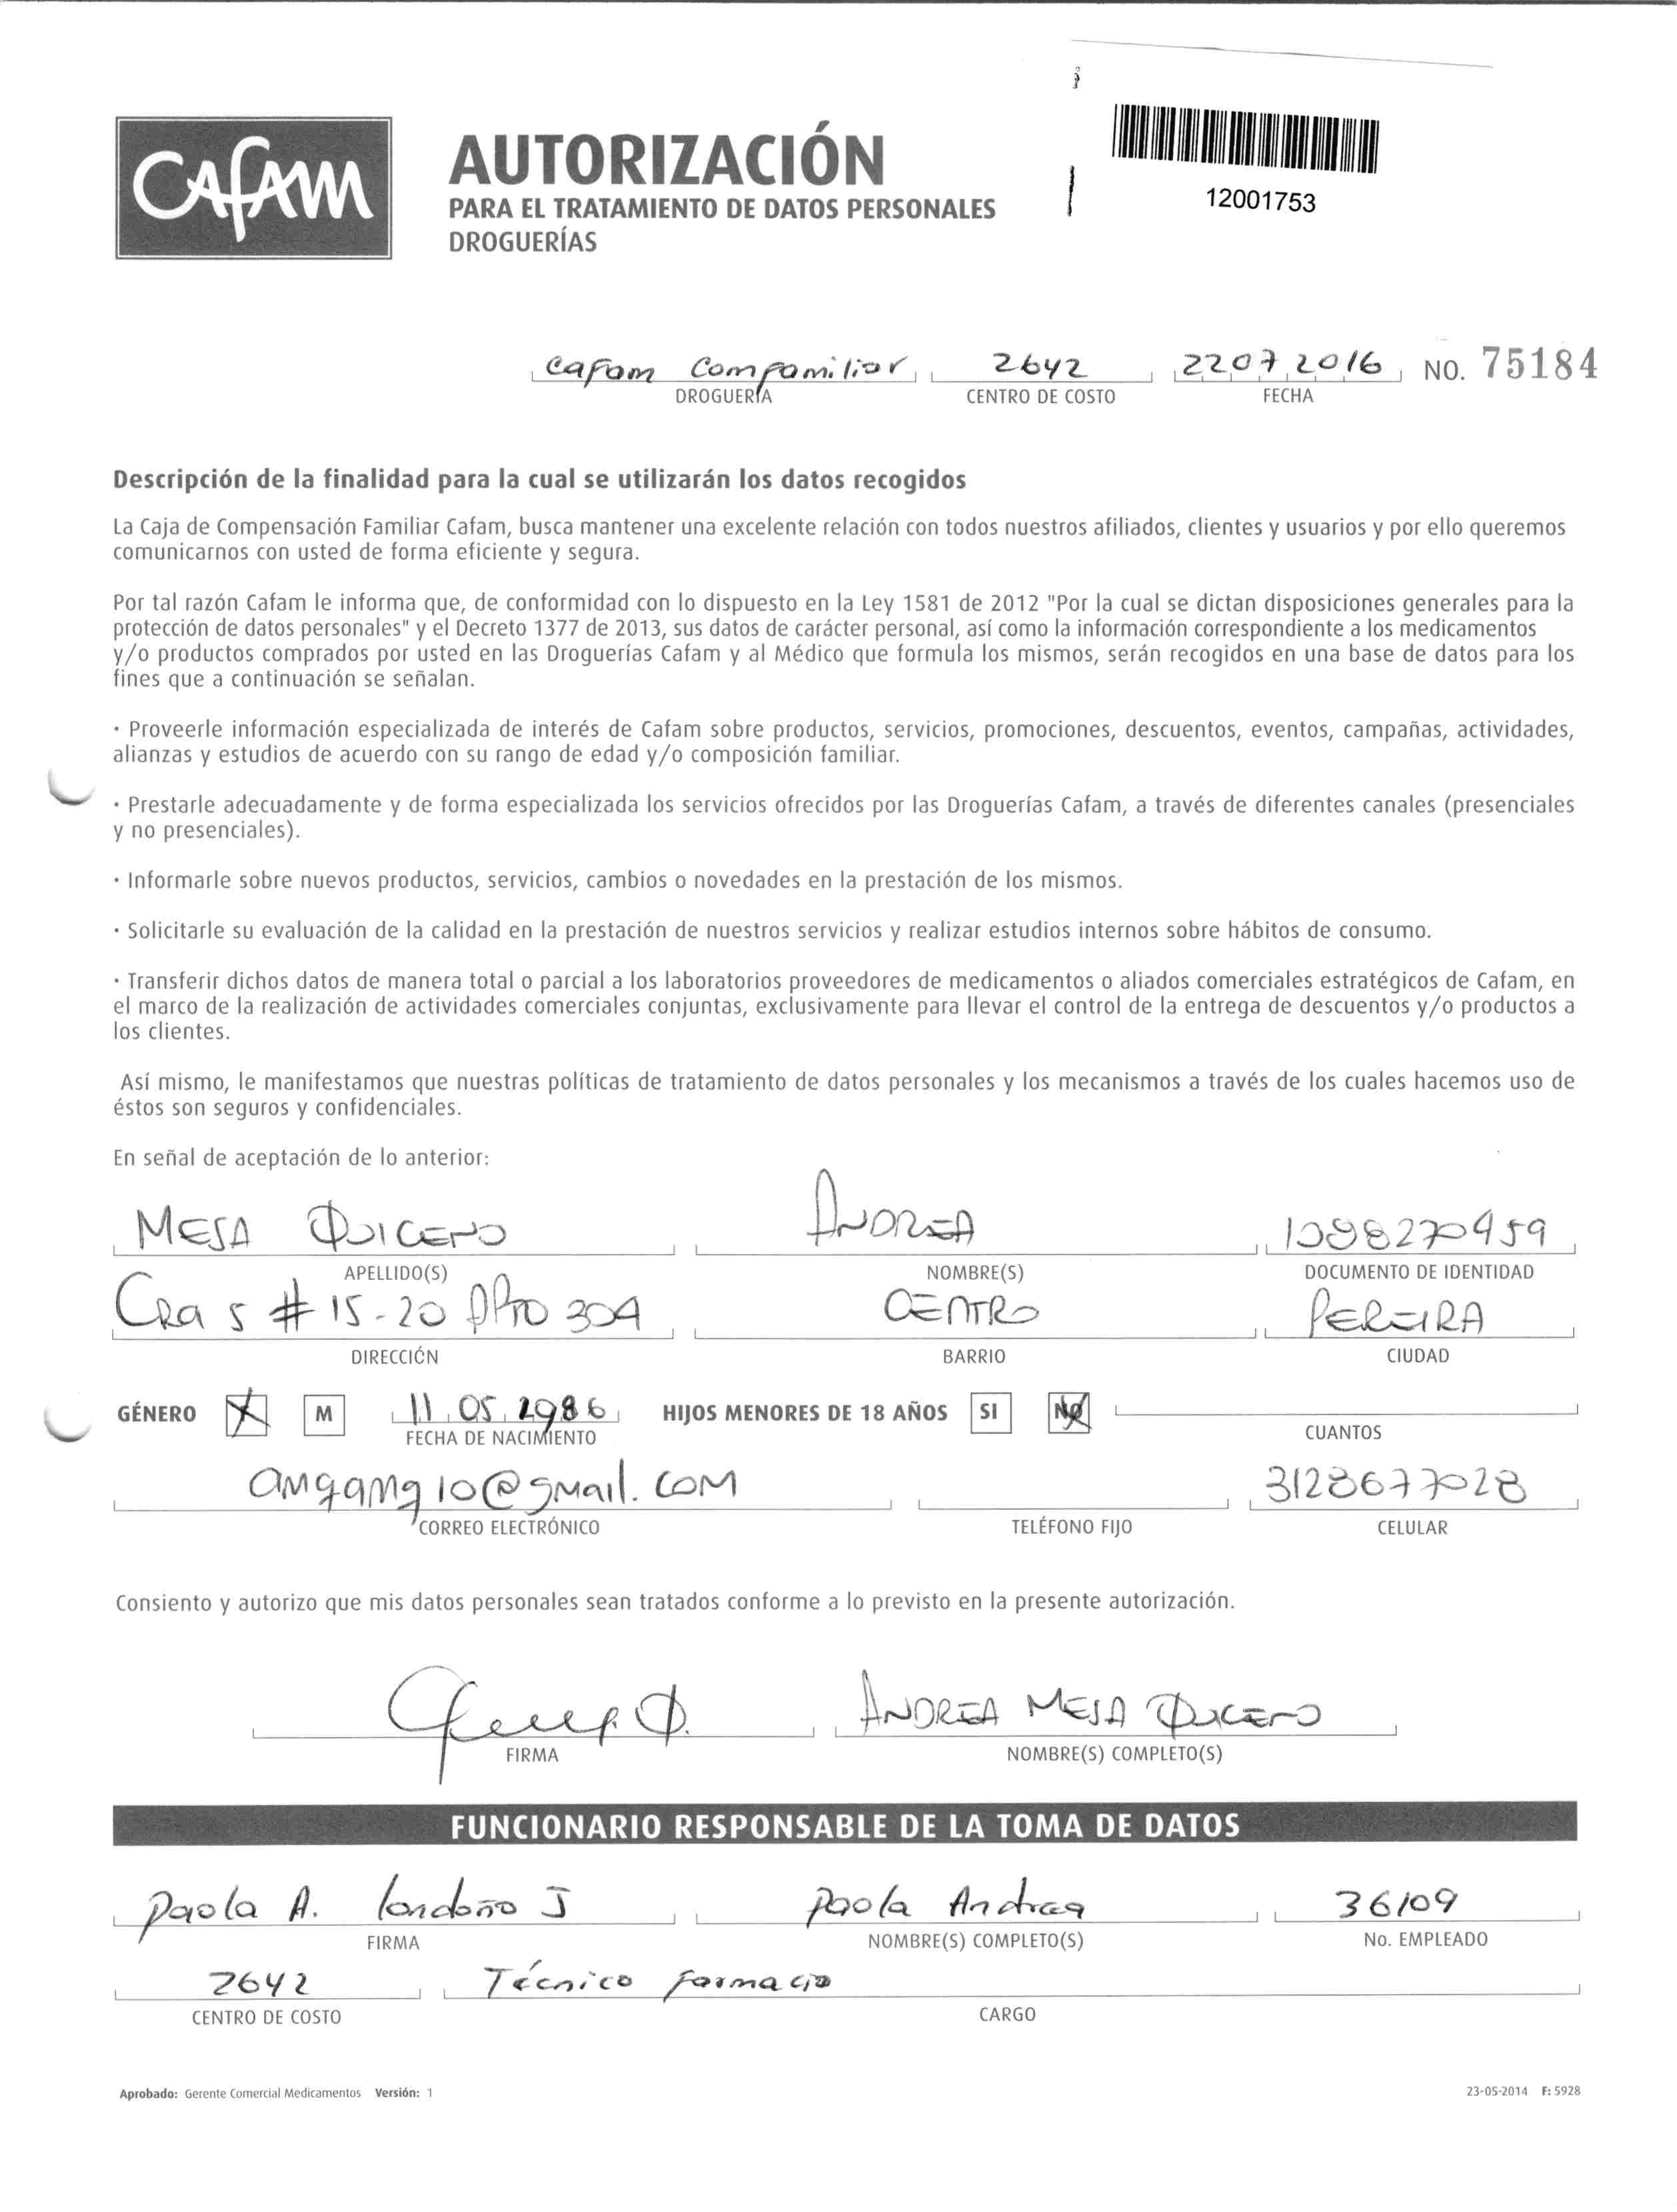 12001753
CAFAM
AUTORIZACIÓN
PARA EL TRATAMIENTO DE DATOS PERSONALES
DROGUERÍAS
Cafam Comfamiliar 2642 22 07 2016 NO. 75184
DROGUERÍA CENTRO DE COSTO FECHA
Descripción de la finalidad para la cual se utilizarán los datos recogidos
La Caja de Compensación Familiar Cafam, busca mantener una excelente relación con todos nuestros afiliados, clientes y usuarios y por ello queremos
comunicarnos con usted de forma eficiente y segura.
Por tal razón Cafam le informa que, de conformidad con lo dispuesto en la Ley 1581 de 2012 "Por la cual se dictan disposiciones generales para la
protección de datos personales" y el Decreto 1377 de 2013, sus datos de carácter personal, así como la información correspondiente a los medicamentos
y/o productos comprados por usted en las Droguerías Cafam y al Médico que formula los mismos, serán recogidos en una base de datos para los
fines que a continuación se señalan.
· Proveerle información especializada de interés de Cafam sobre productos, servicios, promociones, descuentos, eventos, campañas, actividades,
alianzas y estudios de acuerdo con su rango de edad y/o composición familiar.
· Prestarle adecuadamente y de forma especializada los servicios ofrecidos por las Droguerías Cafam, a través de diferentes canales (presenciales
y no presenciales).
· Informarle sobre nuevos productos, servicios, cambios o novedades en la prestación de los mismos.
· Solicitarle su evaluación de la calidad en la prestación de nuestros servicios y realizar estudios internos sobre hábitos de consumo.
· Transferir dichos datos de manera total o parcial a los laboratorios proveedores de medicamentos o aliados comerciales estratégicos de Cafam, en
el marco de la realización de actividades comerciales conjuntas, exclusivamente para llevar el control de la entrega de descuentos y/o productos a
los clientes.
Así mismo, le manifestamos que nuestras políticas de tratamiento de datos personales y los mecanismos a través de los cuales hacemos uso de
éstos son seguros y confidenciales.
En señal de aceptación de lo anterior:
MESA QUICENO ANDREA 1088270959
APELLIDO(S) NOMBRE(S) DOCUMENTO DE IDENTIDAD
Cra 5 # 15-20 Apto 304 CENTRO PEREIRA
DIRECCIÓN BARRIO CIUDAD
GÉNERO M 11 05 1986 HIJOS MENORES DE 18 AÑOS SI NO
FECHA DE NACIMIENTO CUANTOS
amqamq10@gmail.com 3128677028
CORREO ELECTRÓNICO TELÉFONO FIJO CELULAR
Consiento y autorizo que mis datos personales sean tratados conforme a lo previsto en la presente autorización.
ANDREA MESA QUICENO
FIRMA NOMBRE(S) COMPLETO(S)
FUNCIONARIO RESPONSABLE DE LA TOMA DE DATOS
Paola A. Londoño J Paola Andrea 36109
FIRMA NOMBRE(S) COMPLETO(S) No. EMPLEADO
2642 Técnico farmacia
CENTRO DE COSTO CARGO
Aprobado: Gerente Comercial Medicamentos Versión: 1 23-05-2014 F: 5928